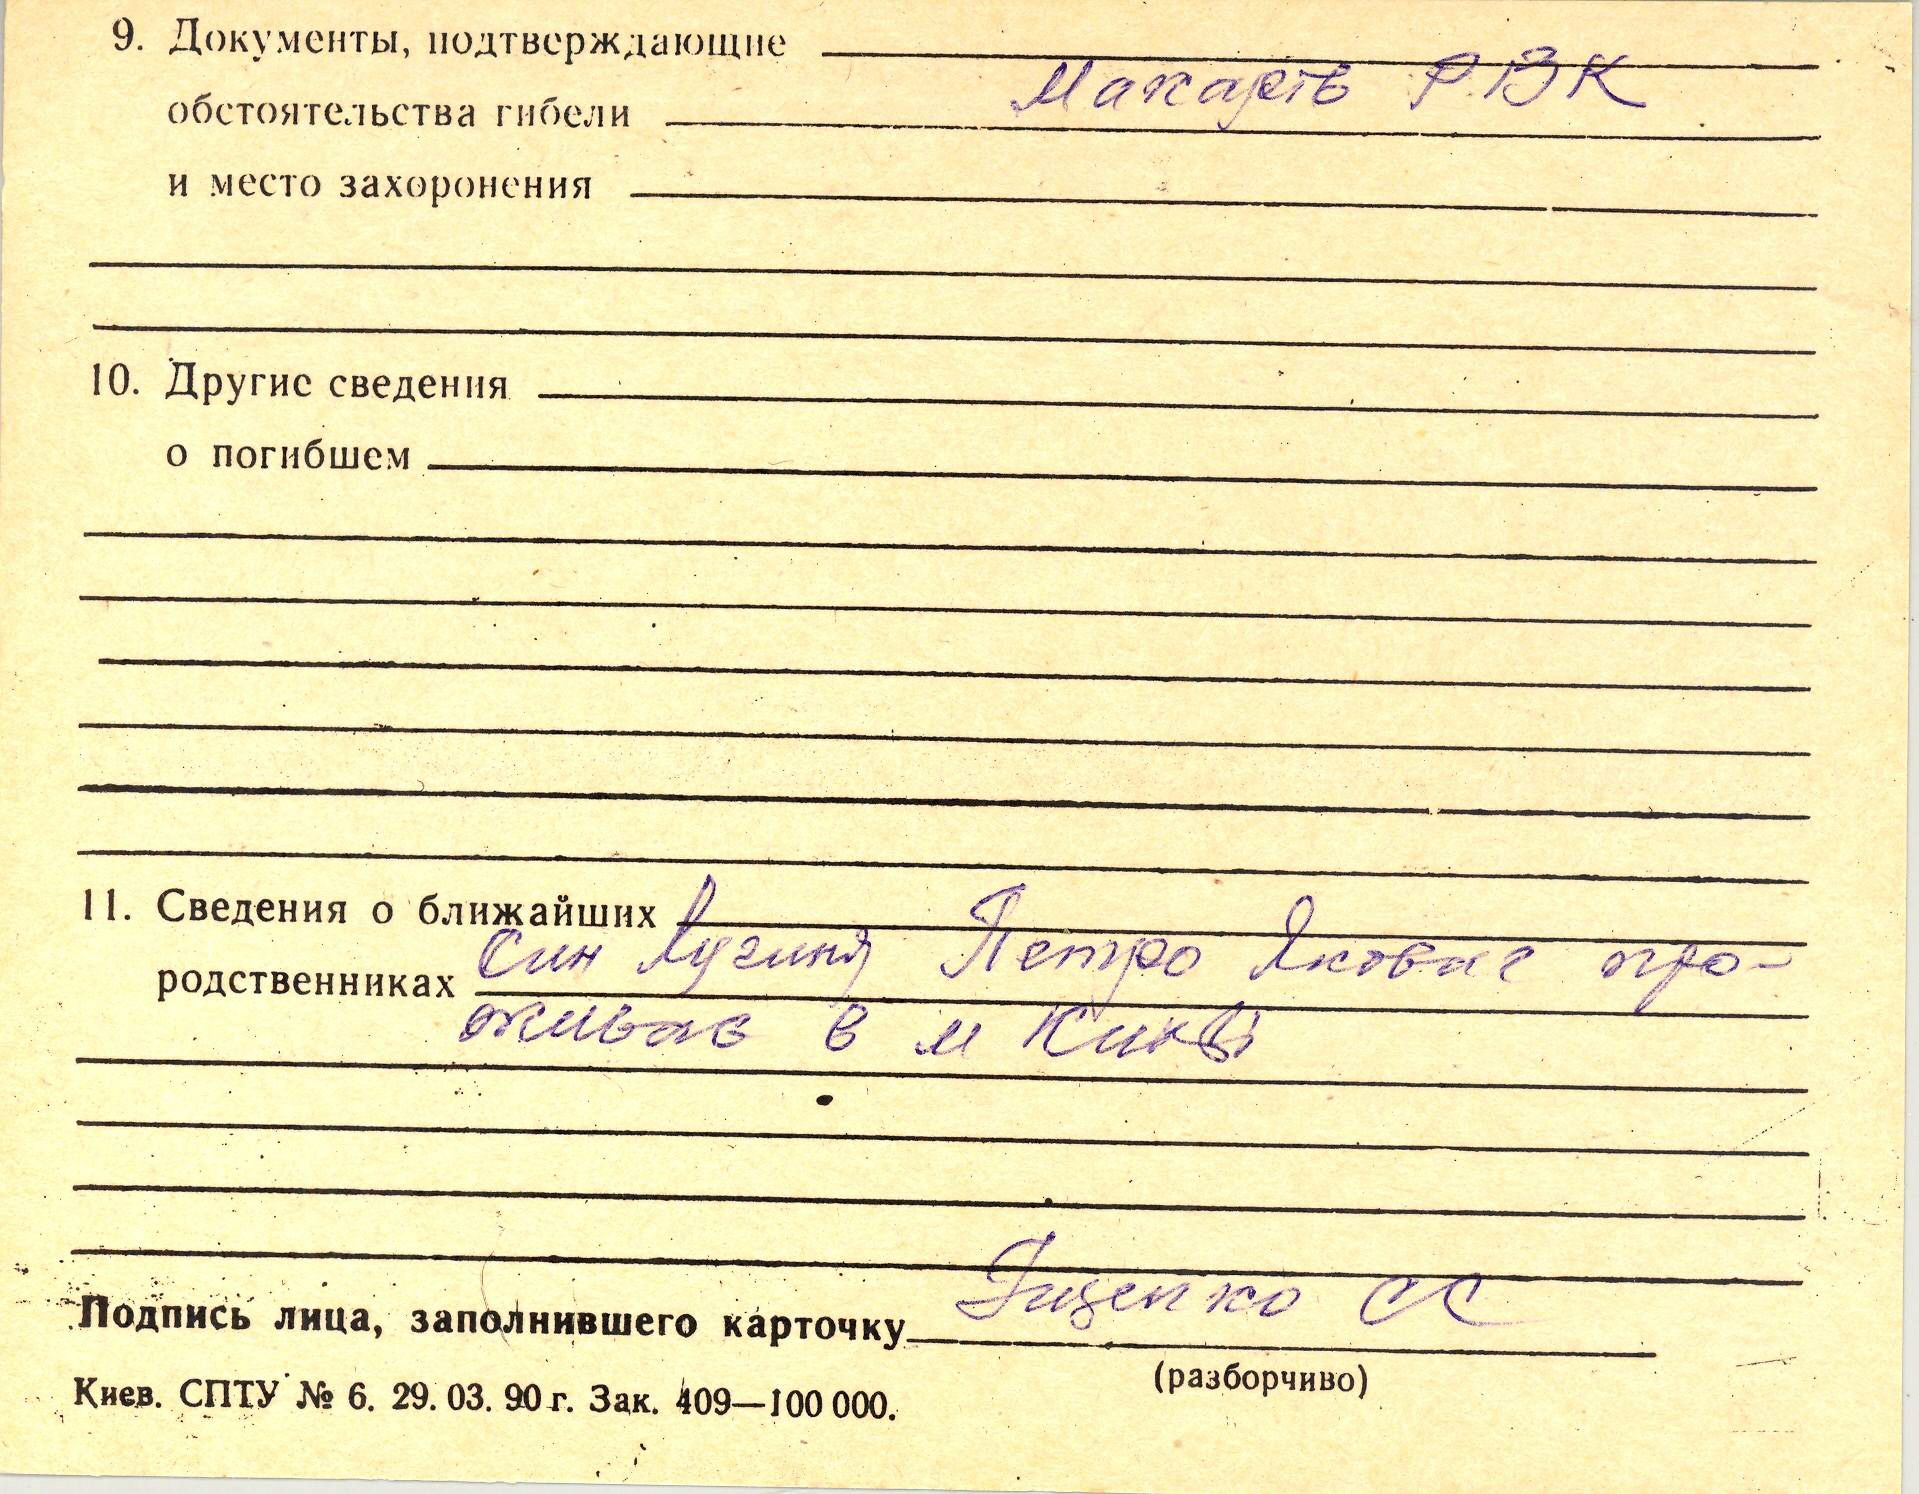 9. Документы, подтверждающие
Макарів РВК
обстоятельства гибели
и место захоронения
10. Другие сведения
о погибшем
11. Сведения о ближайших
родственниках син Лугиня Петро Якович про-
живав в м Києві
Подпись лица, заполнившего карточку Гиценко СС
(разборчиво)
Киев. СПТУ № 6. 29. 03. 90 г. Зак. 409—100 000.